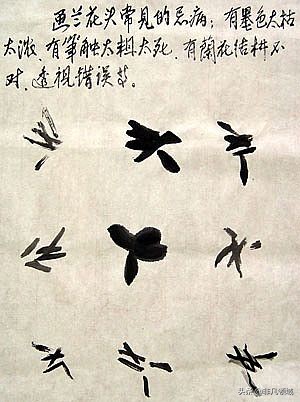 画兰花头常见的忌病：有墨色太枯
太泼，有笔触太粗太死，有蘭花结构不
对，透视错误等。
头条@非凡领域